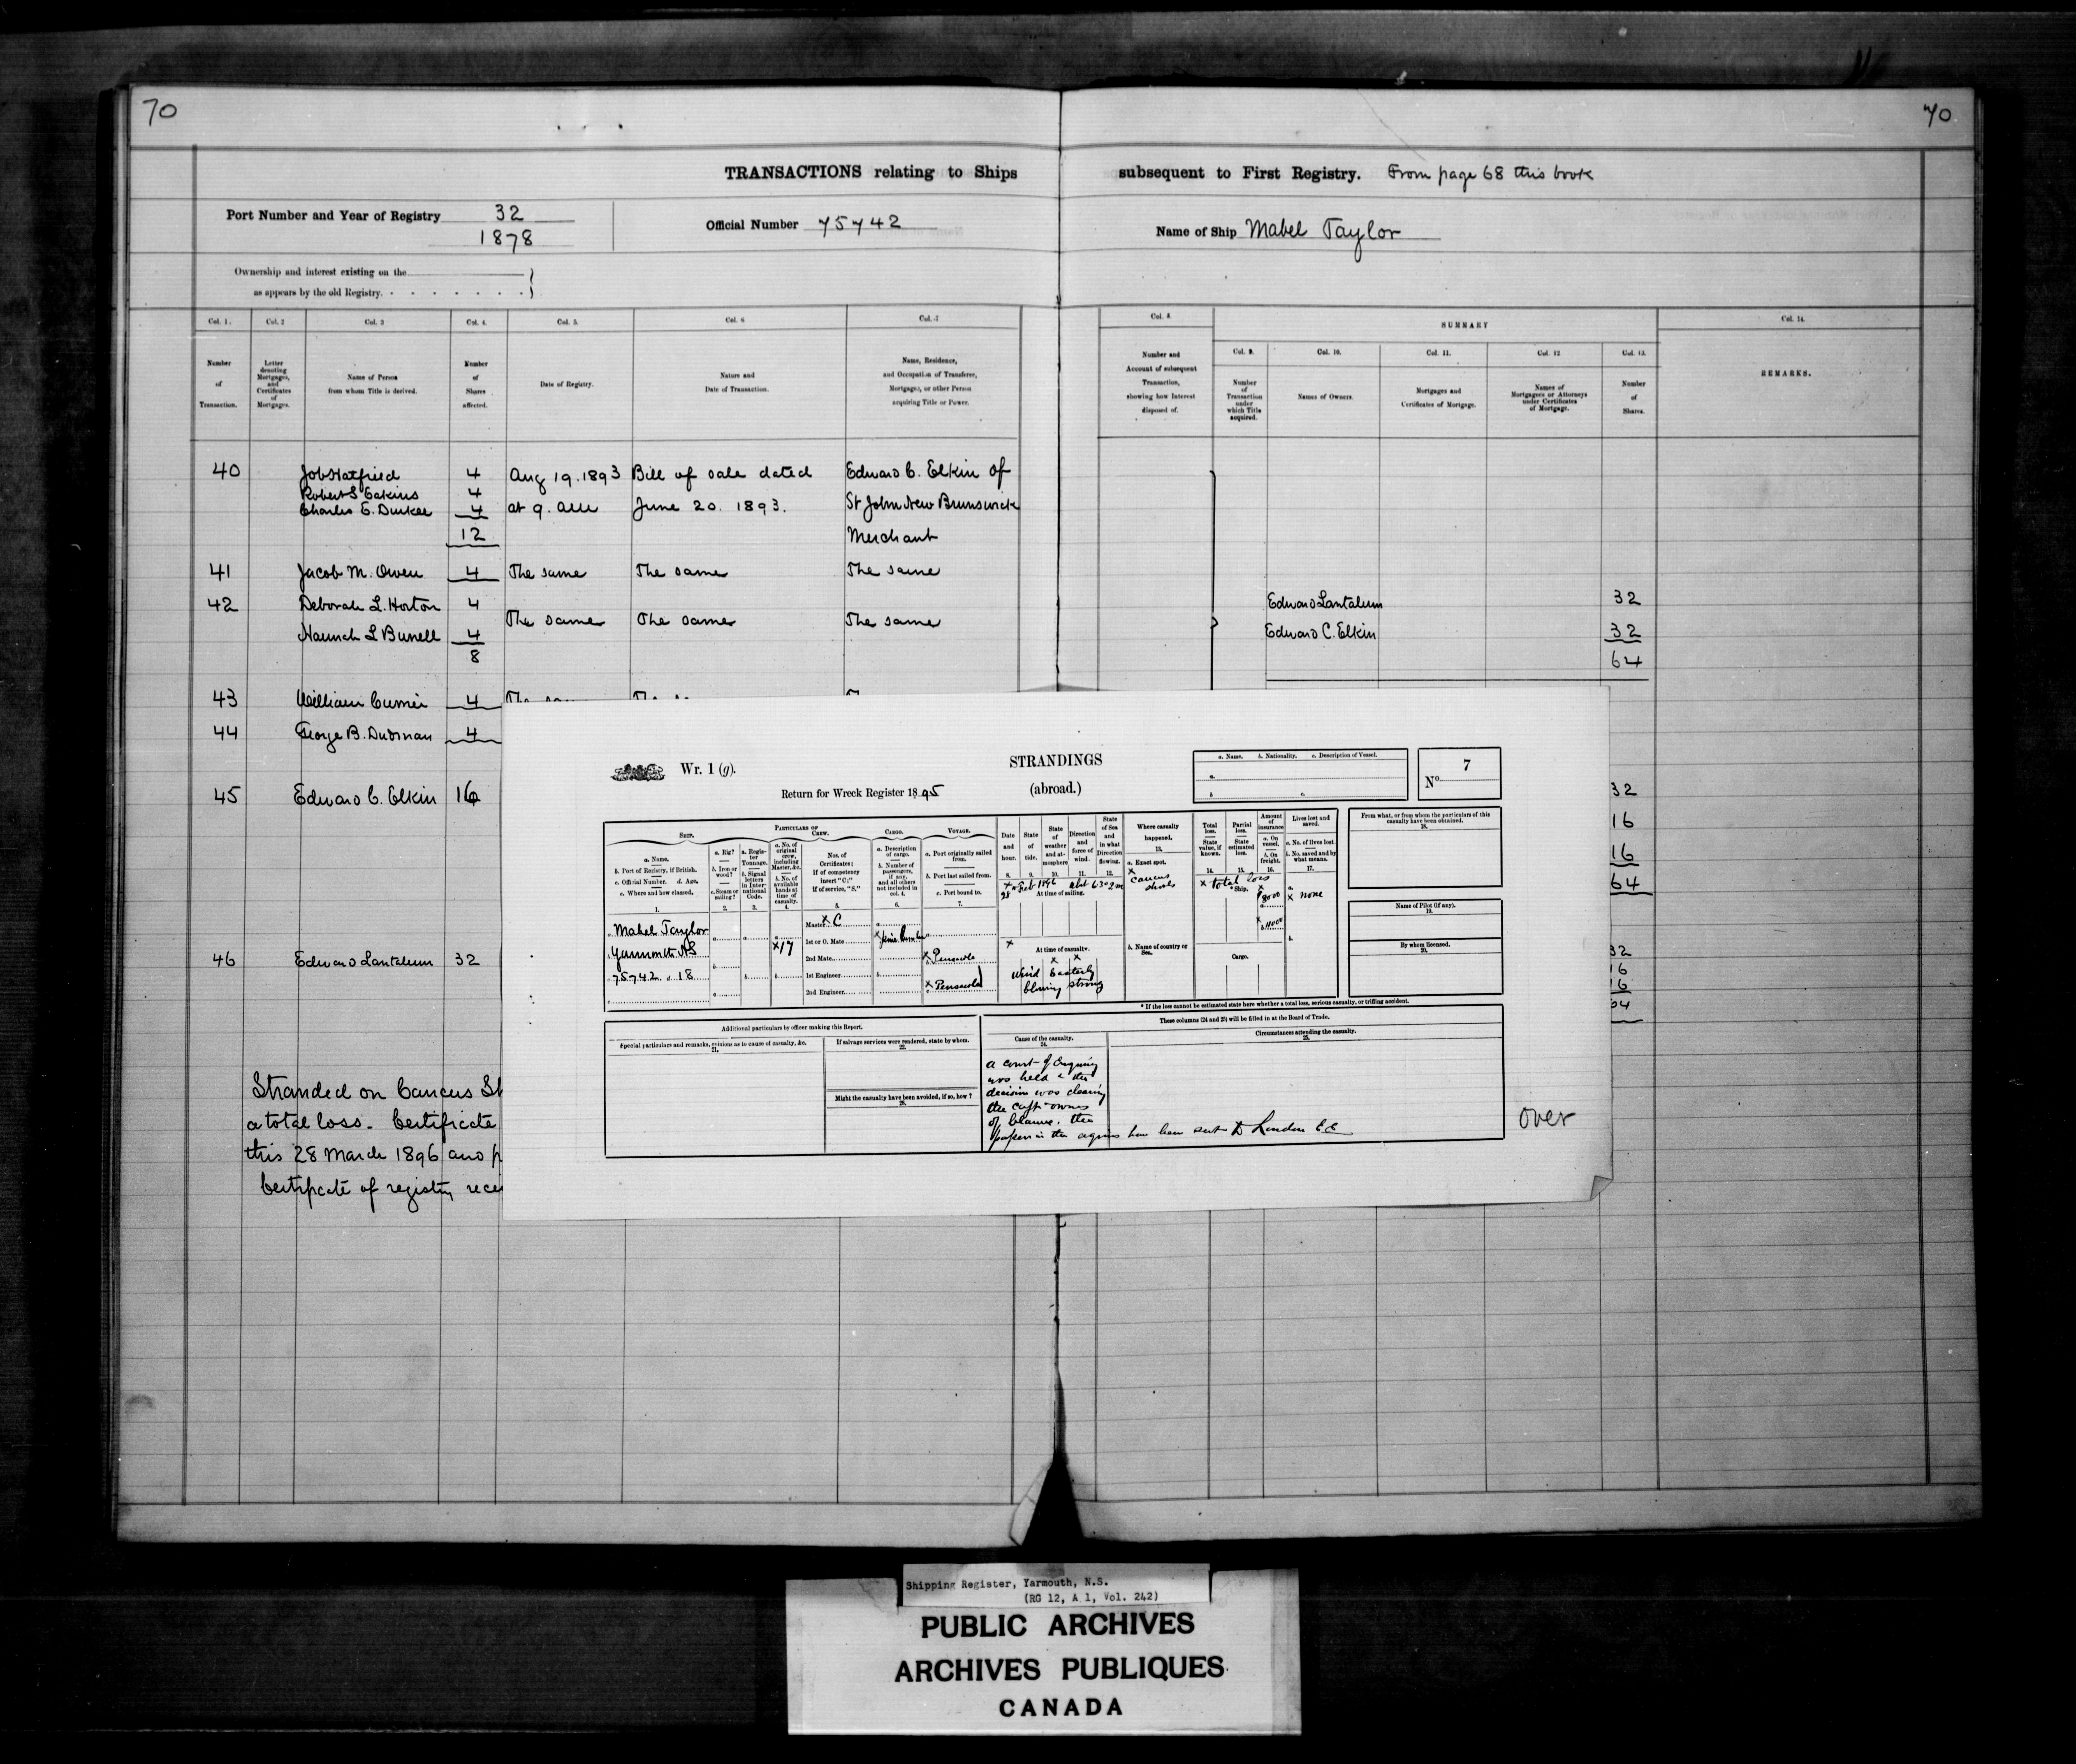 70
70
TRANSACTIONS relating to Ships subsequent to First Registry. From page 68 this book
Port Number and Year of Registry 32
1878
Official Number 75742
Name of Ship Mabel Taylor
Ownership and interest existing on the
as appears by the old Registry.
Col. 1. Col. 2 Col. 3 Col. 4. Col. 5. Col. 6 Col. 7 Col. 8. SUMMARY Col. 14.
Col. 9. Col. 10. Col. 11. Col. 12 Col. 13.
Number of Transaction.
Letter denoting Mortgages, and Certificates of Mortgages.
Name of Person from whom Title is derived.
Number of Shares affected.
Date of Registry.
Nature and Date of Transaction.
Name, Residence, and Occupation of Transferee, Mortgagee, or other Person acquiring Title or Power.
Number and Account of subsequent Transaction, showing how Interest disposed of.
Number of Transaction under which Title acquired.
Names of Owners.
Mortgages and Certificates of Mortgage.
Names of Mortgagees or Attorneys under Certificates of Mortgage.
Number of Shares.
REMARKS.
40 Job Hatfield 4 Aug 19. 1893 Bill of sale dated Edward C. Elkin of
Robert S Eakins 4
Charles E. Dunker 4 at 9. am June 20. 1893. St John New Brunswick
12 Merchant
41 Jacob M. Owen 4 The same The same The same
42 Deborah L. Horton 4 The same The same The same
Hannah L Bunell 4
8
Edward Lantalum 32
Edward C. Elkin 32
64
43 William Currier 4
44 George B. Dudman 4
45 Edward C. Elkin 16
32
16
16
64
46 Edward Lantalum 32
32
16
16
64
Stranded on Cancus
a total loss. Certificate
this 28 March 1896 and
Certificate of registry
Wr. 1 (g).
STRANDINGS
(abroad.)
Return for Wreck Register 1895
a. Name. b. Nationality. c. Description of Vessel.
a.
b. c.
No. 7
SHIP. PARTICULARS OF CREW. CARGO. VOYAGE.
a. Name.
b. Port of Registry, if British.
c. Official Number. d. Age.
e. Where and how classed.
1.
a. Rig?
b. Iron or wood?
c. Steam or sailing?
2.
a. Register Tonnage.
b. Signal letters in International Code.
3.
a. No. of original crew, including Master, &c.
b. No. of available hands at time of casualty.
4.
Nos. of Certificates; If of competency insert "C;" If of service, "S."
5.
a. Description of cargo.
b. Number of passengers, if any, and all others not included in col. 4.
6.
a. Port originally sailed from.
b. Port last sailed from.
c. Port bound to.
7.
Date and hour.
8.
State of tide.
9.
State of weather and atmosphere
10.
Direction and force of wind.
11.
State of Sea and in what Direction flowing.
12.
Where casualty happened.
13.
a. Exact spot.
x
Cancus
shoals
b. Name of country or Sea.
Total loss. State value, if known.
14.
Partial loss. State estimated loss.
15.
Amount of Insurance
a. On vessel.
b. On freight.
16.
Lives lost and saved.
a. No. of lives lost
b. No. saved and by what means.
17.
From what, or from whom the particulars of this casualty have been obtained.
18.
Name of Pilot (if any).
19.
By whom licensed.
20.
28 Feb 1896
At time of sailing.
x total loss
Ship.
$8000
x none
Cargo.
Mabel Taylor
Yarmouth NS
75742 d. 18
x 17
Master x C
1st or O. Mate
2nd Mate
1st Engineer
2nd Engineer
x Pensacola
x Pensacola
At time of casualty.
x x
Wind Easterly
blowing strong
* If the loss cannot be estimated state here whether a total loss, serious casualty, or trifling accident.
Additional particulars by officer making this Report.
Special particulars and remarks, opinions as to cause of casualty, &c.
21.
If salvage services were rendered, state by whom.
22.
Might the casualty have been avoided, if so, how?
23.
These columns (24 and 25) will be filled in at the Board of Trade.
Cause of the casualty.
24.
Circumstances attending the casualty.
25.
a court of Enquiry
was held & the
decision was clearing
the capt owners
of blame. the
papers in the have been sent to London E.C
over
Shipping Register, Yarmouth, N.S.
(RG 12, A 1, Vol. 242)
PUBLIC ARCHIVES
ARCHIVES PUBLIQUES
CANADA